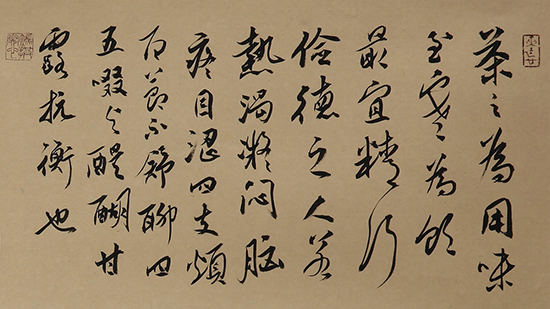 茶之為用味
至寒為飲
最宜精行
儉德之人若
熱渴凝悶腦
疼目澀四支煩
百節不舒聊四
五啜与醍醐甘
露抗衡也